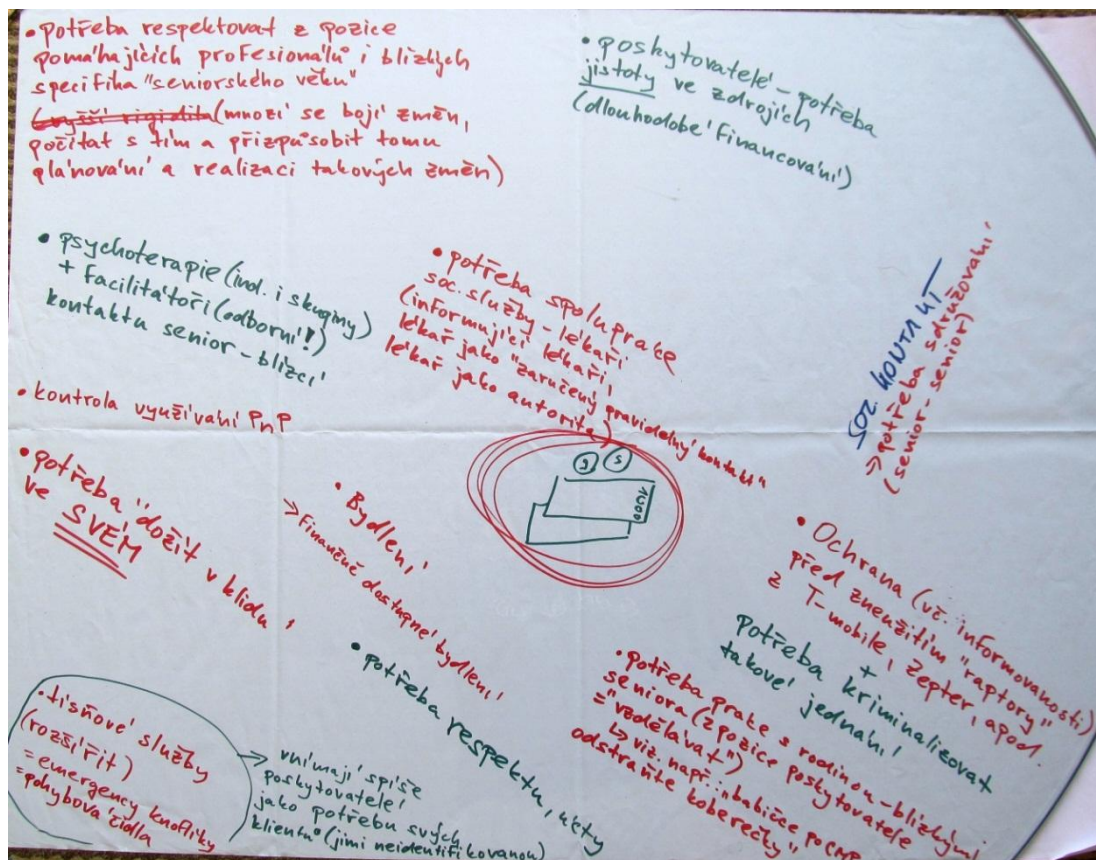 • potřeba respektovat z pozice
pomáhajících profesionálů i blízkých
specifika "seniorského věku"
(vyšší rigidita (mnozí se bojí změn,
počítat s tím a přizpůsobit tomu
plánování a realizaci takových změn)
• poskytovatelé - potřeba
jistoty ve zdrojích
(dlouhodobé financování)
• psychoterapie (ind. i skupiny)
+ facilitátoři (odborní!)
kontaktu senior - blízcí
• potřeba spolupráce
soc. služby - lékaři
(informující lékaři,
lékař jako "zaručený pravidelný kontakt"
lékař jako autorita)
SOC. KONTAKT
→ potřeba sdružování
(senior - senior)
• kontrola využívání PnP
• potřeba "dožít v klidu
ve SVÉM
• Bydlení
→ Finančně dostupné bydlení
• Ochrana (vč. informovanosti)
před zneužitím "raptory"
z T-mobile, Zepter, apod.
+
potřeba kriminalizovat
takové jednání
• potřeba respektu, úcty
• potřeba práce s rodinou - blízkými
seniora (z pozice poskytovatele
= "vzdělávat")
↳ viz. např.: "babičce po CMP
odstraňte koberečky"
• tísňové služby
(rozšířit)
= emergency knoflíky
= pohybová čidla
→ vnímají spíše
poskytovatelé
jako potřebu svých
klientů (jimi neidentifikovanou)